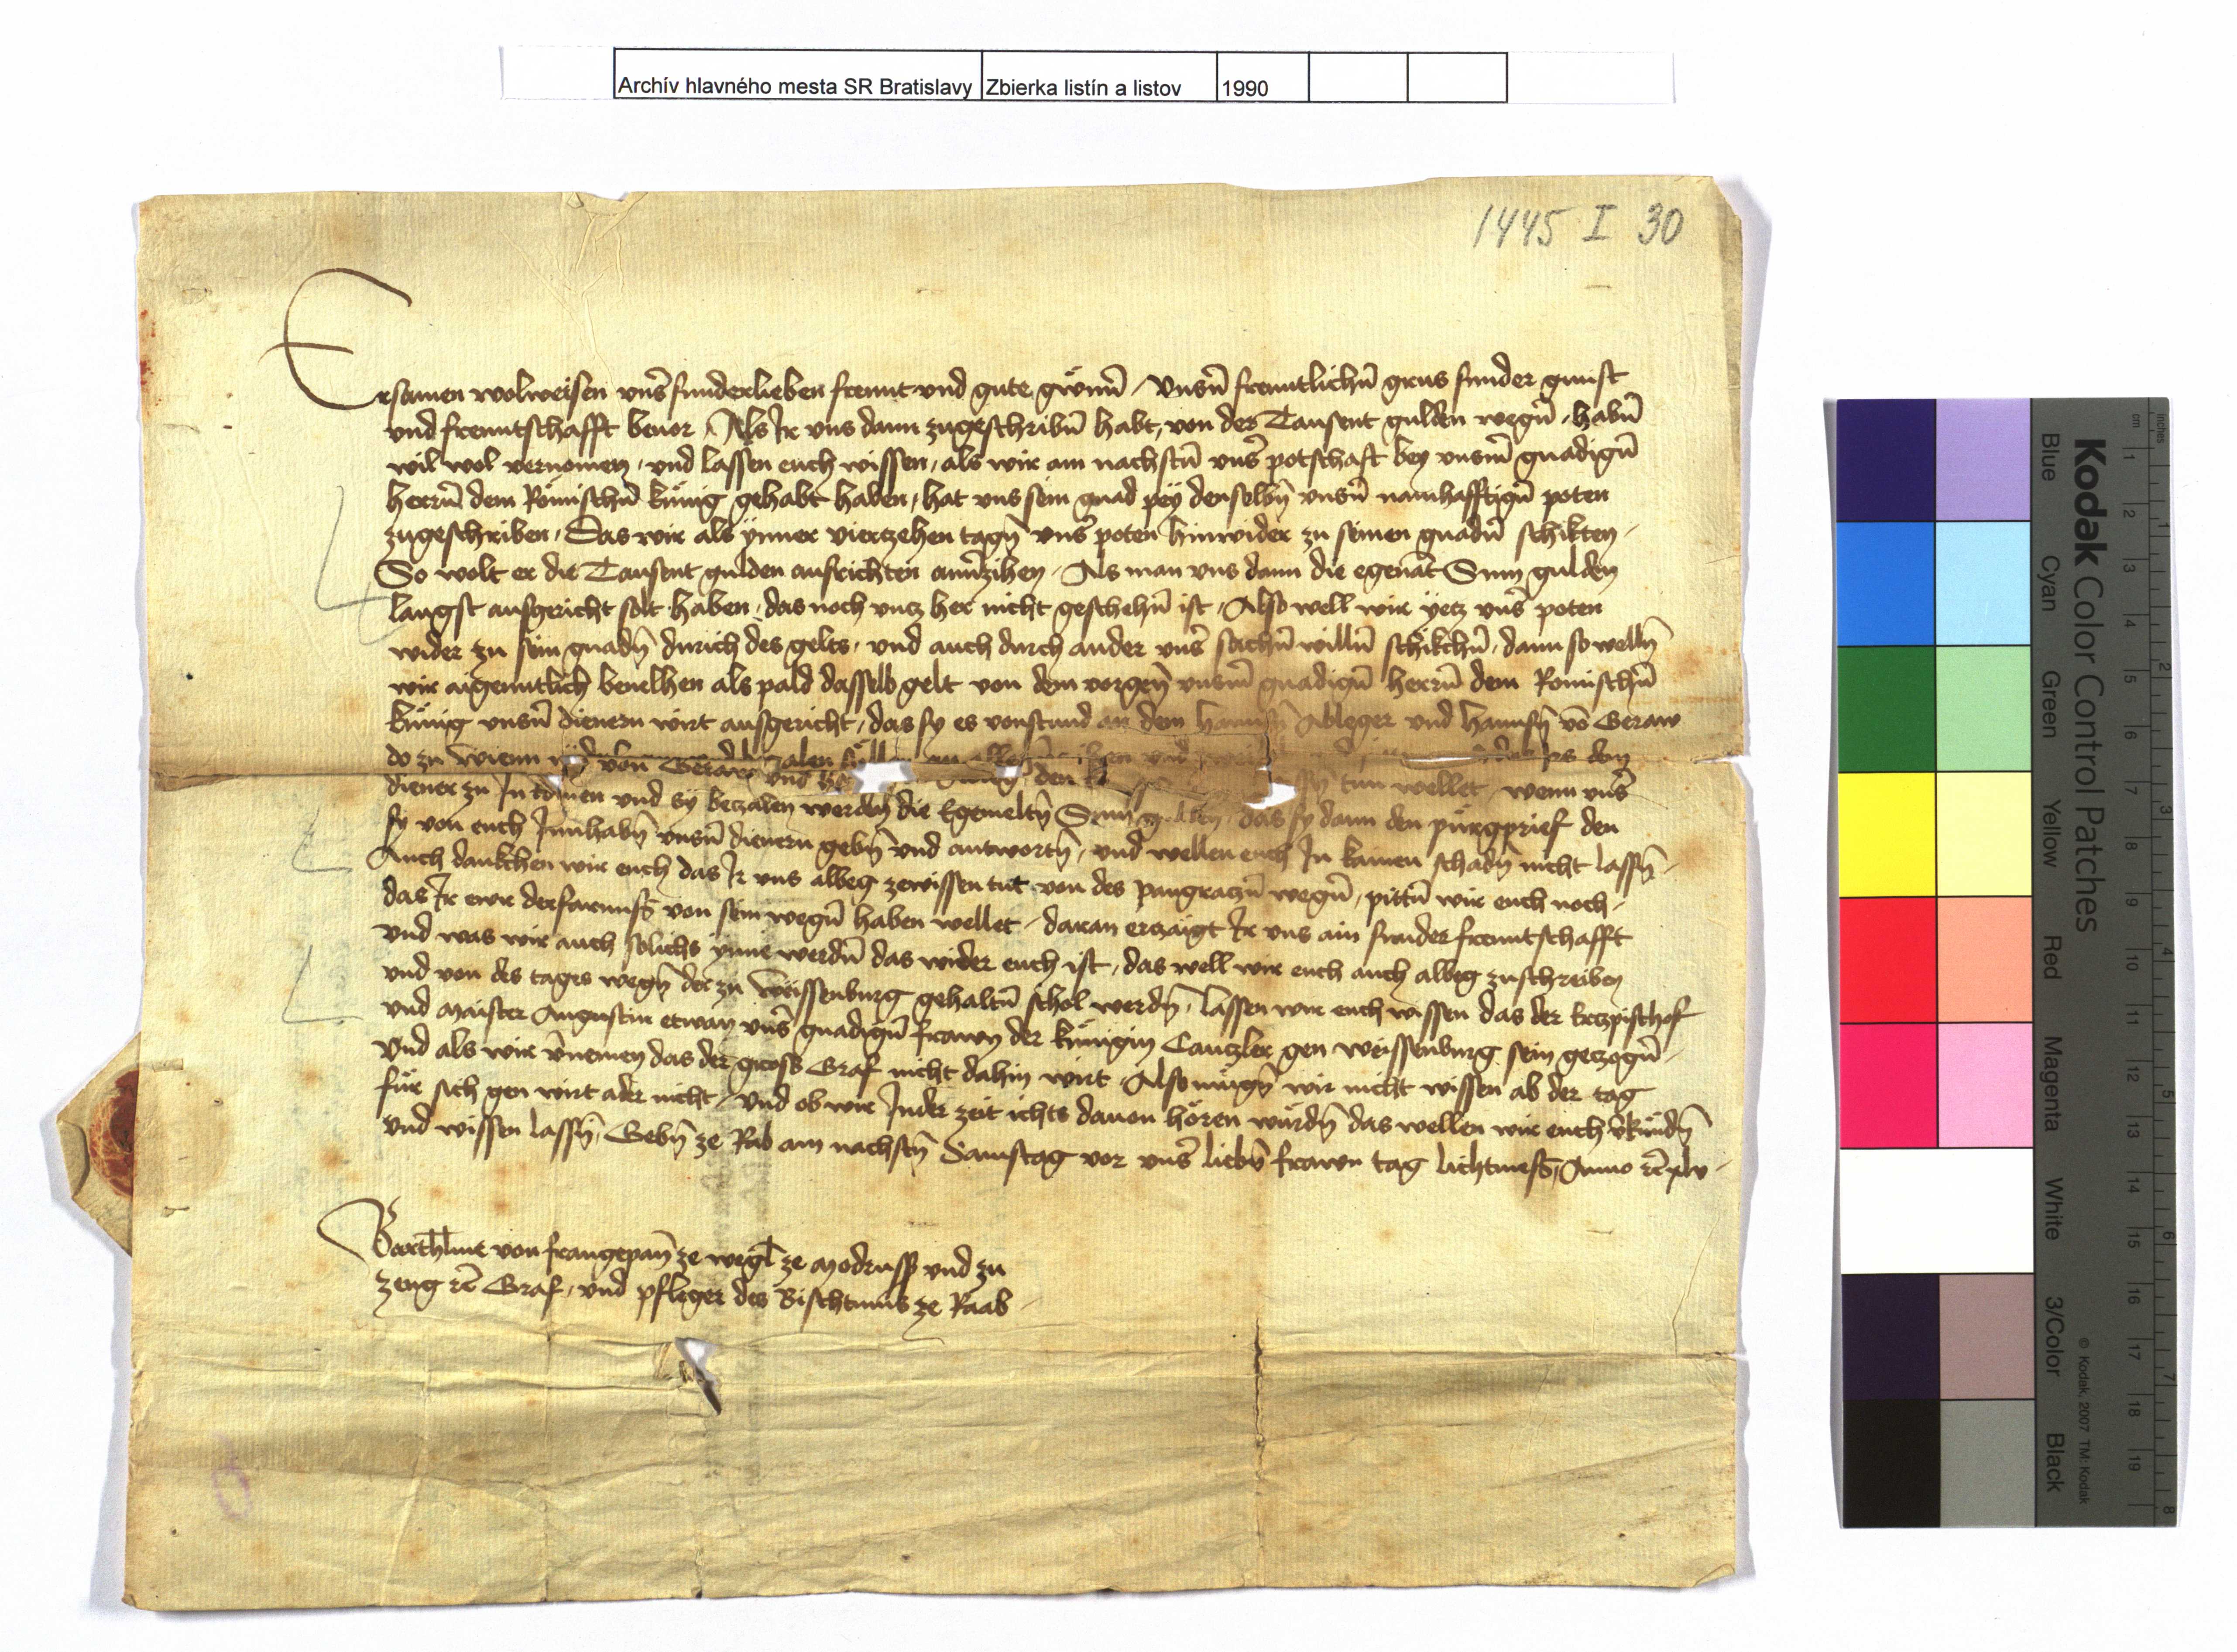 Archív hlavného mesta SR Bratislavy Zbierka listín a listov 1990
1445 I 30
Ersamen wolweisen unsʼ sunderlieben frewnt und gute gwnnʼ. Unsn̄ frewntlichn̄ grus sunder gunst
und frewntschafft beuor. Als Ir uns dann zugeschribn̄ habt, von der Tausent gulden wegn̄, habn̄
wil wol vernomen, und lassen euch wissen, als wir am nachstn̄ unsʼ potschaft bey unsm̄ gnadign̄
herrn̄ dem Römischn̄ künig gehabt haben, hat uns sein gnad pey denselbn̄ unsn̄ namhafftign̄ poten
zugeschriben, Das wir als ynner viertzehen tagn̄ unsʼ poten hinwider zu seinen gnadn̄ schikten,
So wolt er die Tausent gulden ausrichten Als man uns dann die egenāt Sum gulden
langst ausgericht solt haben, das noch untz her nicht geschehn̄ ist, Also well wir yetz unsʼ poten
wider zu sein gnadn̄ durich des gelts, und auch durch ander unsʼ sachn̄ willn̄ schikchn̄, dann so welln̄
wir aigenntlich beuelhen als pald dasselb gelt von dem vorgen̄ unsm̄ gnadign̄ herrn̄ dem Romischn̄
künig unsn̄ dienern wirt ausgericht, das sy es vonstund an dem hannsn̄ Ableger und hannsn̄ vō Geraw
do zu Wienn von Geraw zalen den tun wellet, wenn unsʼ
diener zu In komen und sy betzalen werdn̄ die Egemeltn̄ Sum gulden, das sy dann den pürgprief den
sy von euch Innhabn̄ unsn̄ dienern gebn̄ und antwortn̄, und wellen euch In kainen schadn̄ nicht lassn̄.
Auch dankchen wir euch das Ir uns albeg zewissen tut von des pangraczn̄ wegn̄, pittn̄ wir euch noch,
das Ir ewr derfarnuss von sein wegn̄ haben wellet, daran ertzaigt Ir uns ain sunder frewntschafft
und was wir auch solichs ynne werdn̄ das wider euch ist, das well wir euch auch albeg zuschreiben
und von des tages wegn̄ der zu Weissenburg gehaltn̄ schol werdn̄, lassen wir euch wissen das der Ertzpischof
und maister Augustin etwan unsʼ gnadign̄ frawn der künigin Cantzler gen weissenburg sein getzogn̄,
Und als wir v̄nemen das der gross Graf nicht dahin wirt, Also mügn̄ wir nicht wissen ab der tag
für sich gen wirt ader nicht, Und ob wir In der zeit ichts dauon hören würdn̄ das wellen wir euch v̄kündn̄
und wissen lassn̄, Gebn̄ ze Rab am nachstn̄ Samstag vor unsʼ liebn̄ frawn tag lichtmess, Anno rc̄ xlv
Barthlme von frangepan̄ ze wegl ze modrusch und zu
zeng rc̄ Graf, und pfleger des Bischtumbs ze Raab
Kodak Color Control Patches
Blue Cyan Green Yellow Red Magenta White 3/Color Black
© Kodak, 2007 TM: Kodak
inches 1 2 3 4 5 6 7 8
cm 1 2 3 4 5 6 7 8 9 10 11 12 13 14 15 16 17 18 19